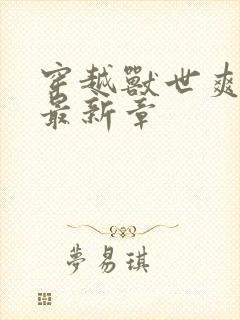 穿越獸世爽
最新章
夢易琪